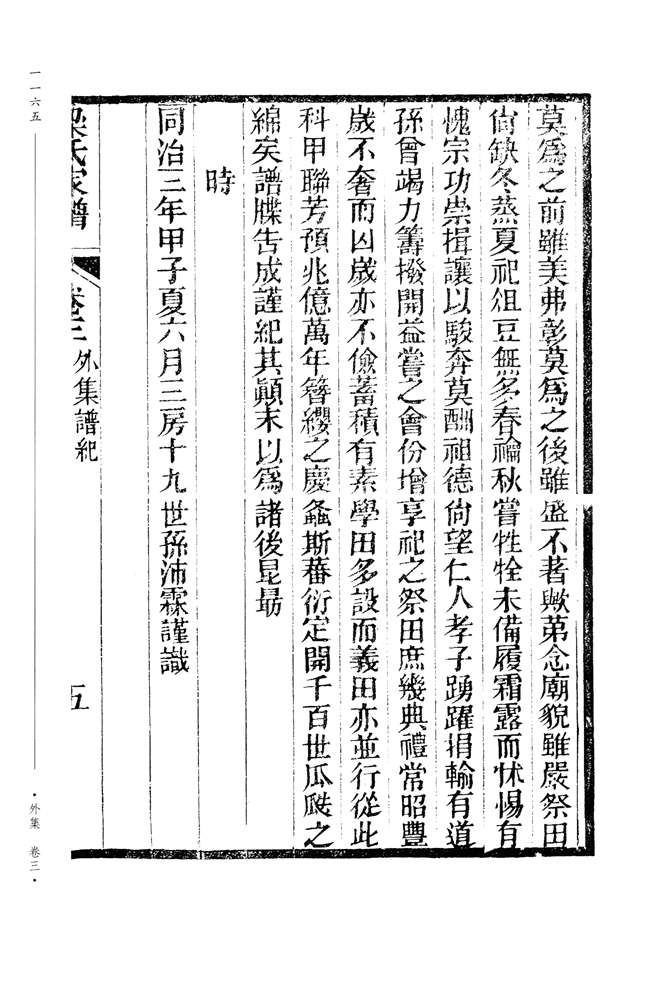 莫爲之前雖美弗彰莫爲之後雖盛不著歟第念廟貌雖嚴祭田
尙缺冬蒸夏祀俎豆無多春禴秋嘗牲牷未備履霜露而怵惕有
愧宗功崇揖讓以駿奔莫酬祖德尙望仁人孝子踴躍捐輸有道
孫曾竭力籌撥開益嘗之會份增享祀之祭田庶幾典禮常昭豐
歲不奢而凶歲亦不儉蓄積有素學田多設而義田亦並行從此
科甲聯芳預兆億萬年簪纓之慶螽斯蕃衍定開千百世瓜瓞之
綿矣譜牒告成謹紀其顚末以爲諸後昆勗
時
同治三年甲子夏六月三房十九世孫沛霖謹識
梁氏家譜 卷三 外集譜紀 五
一一六五
·外集 卷三·